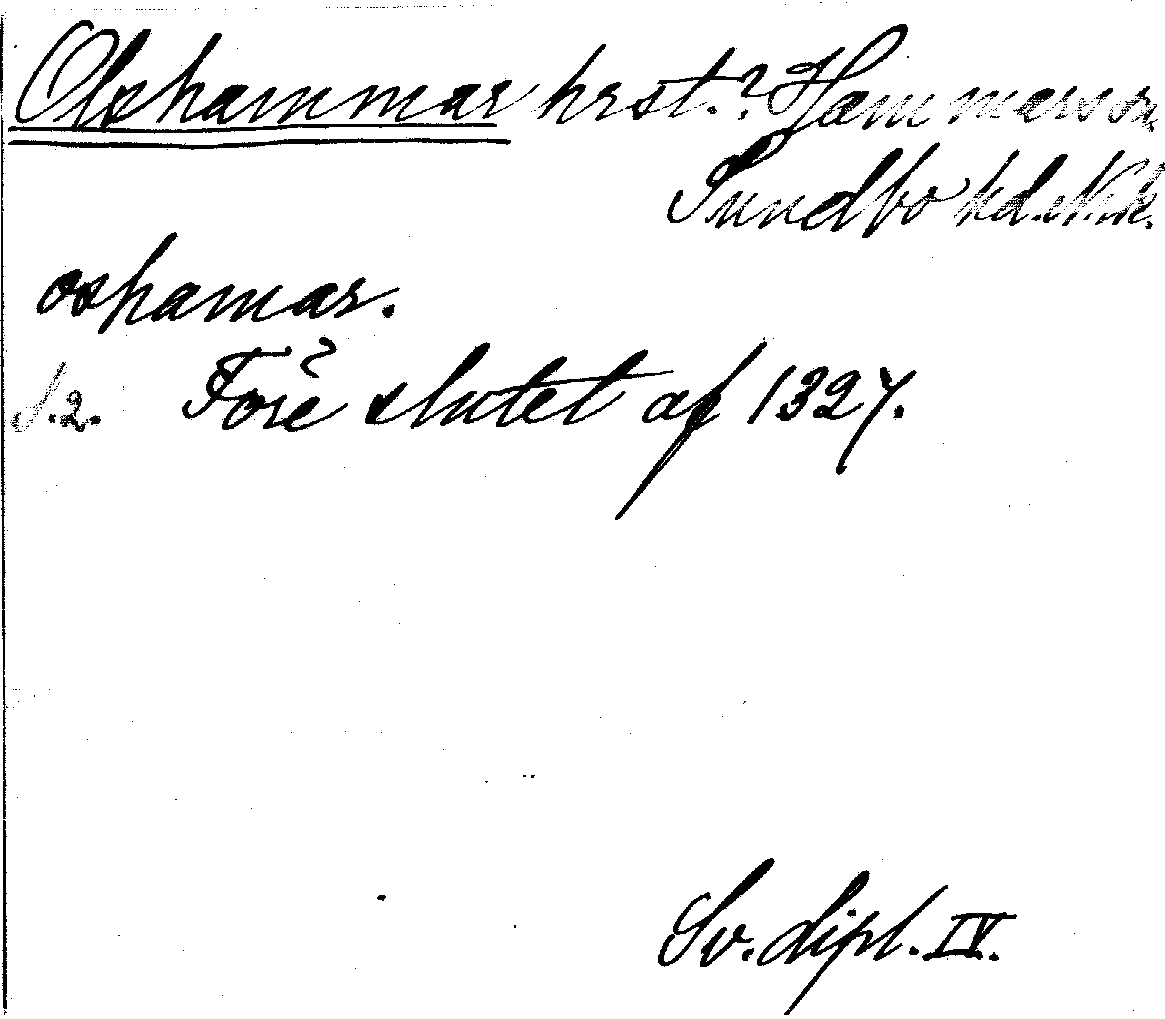 Olshammar hrst.? Hammars sn.
Sundbo hd. Nk.
oshamar.
S. 2. Före? slutet af 1327.
Sv. dipl. IV.